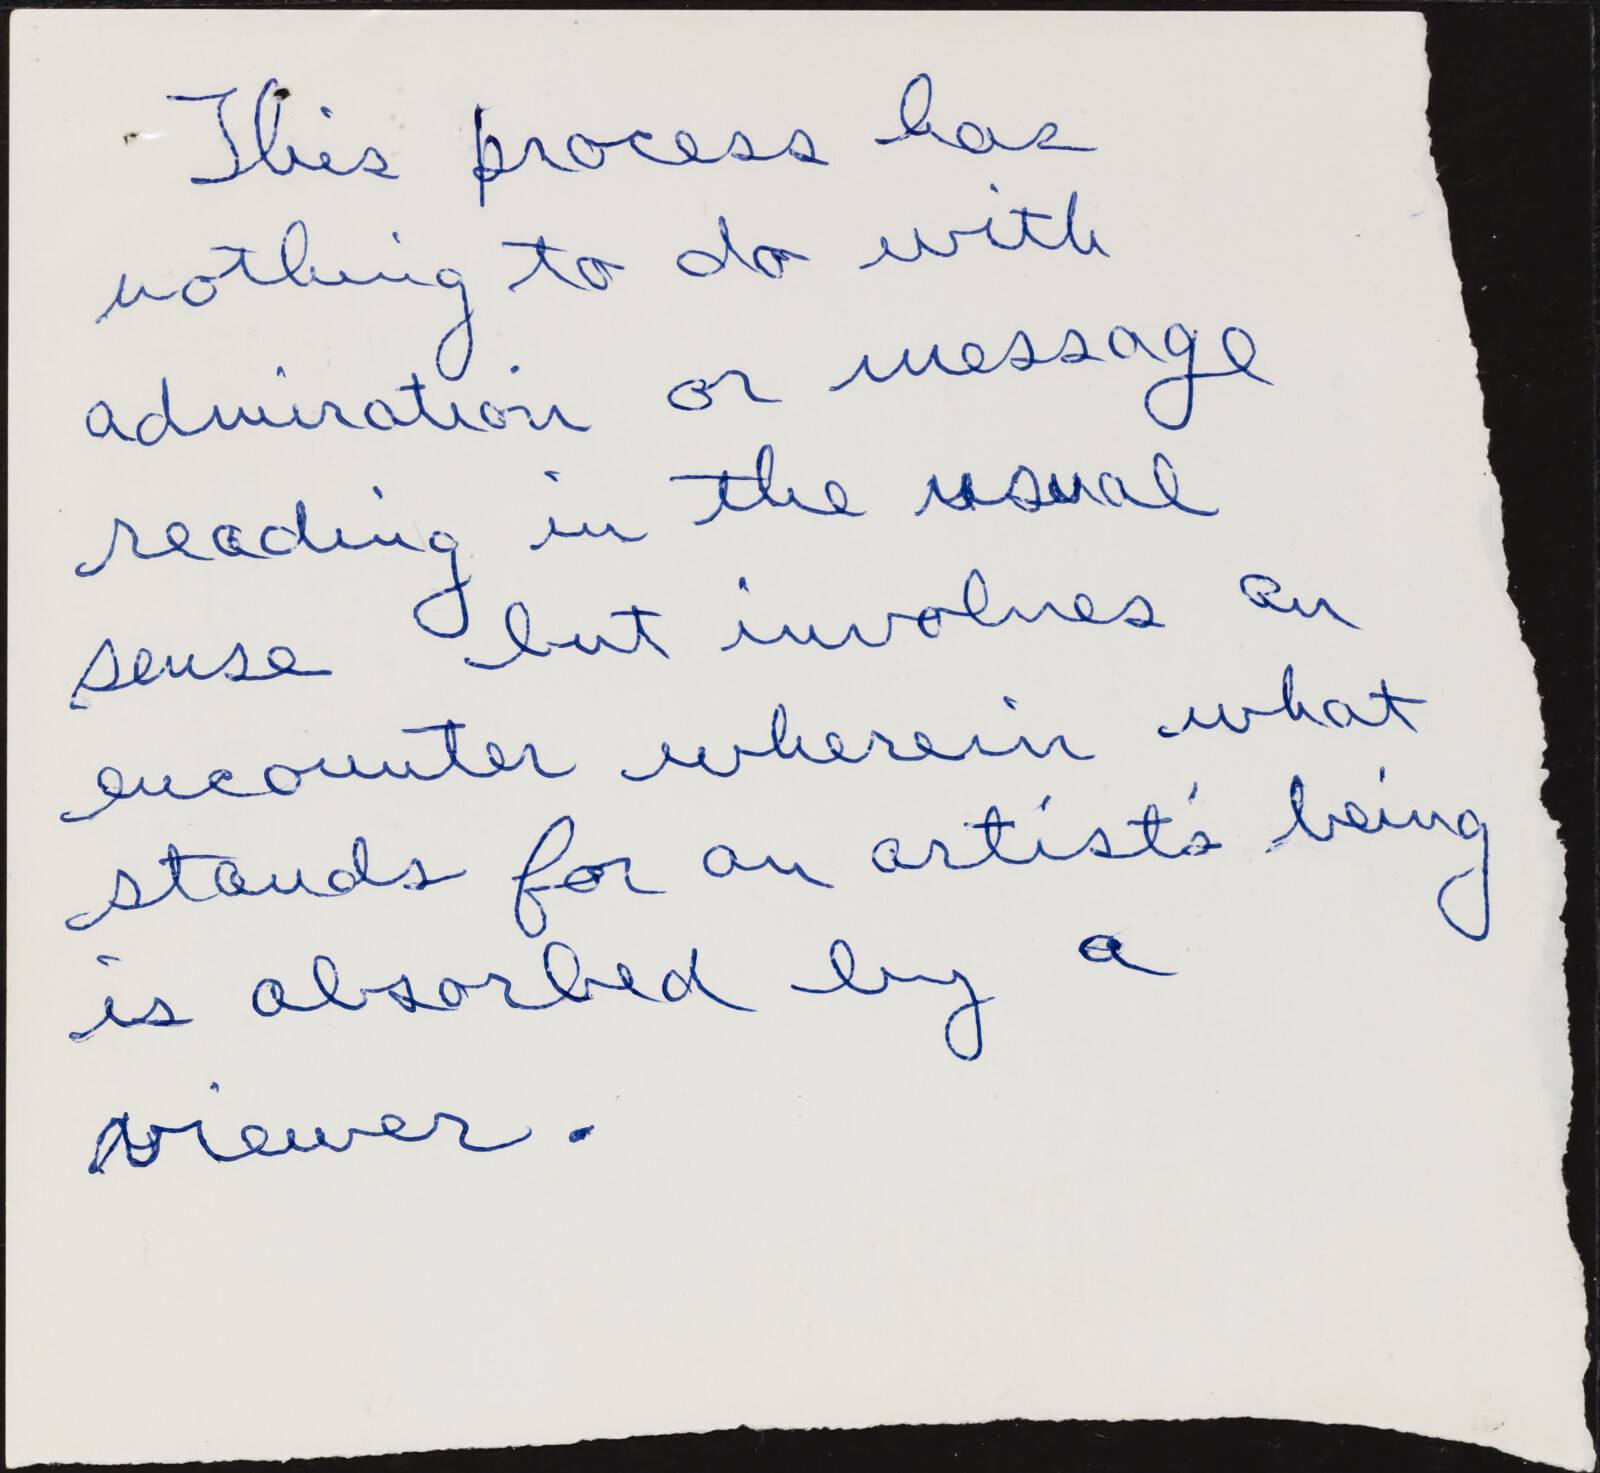 This process has
nothing to do with
admiration or message
reading in the usual
sense but involves an
encounter wherein what
stands for an artist's being
is absorbed by a
viewer.